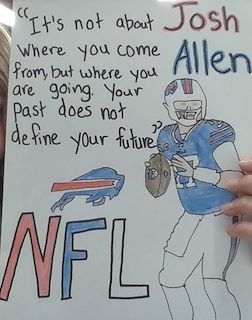 "It's not about
where you come
from, but where you
are going. Your
past does not
define your future"
Josh
Allen
NFL